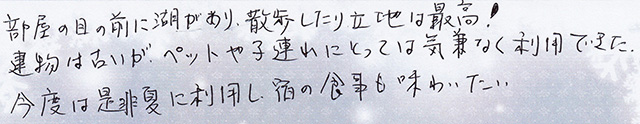 部屋の目の前に湖があり、散歩したり立地は最高!
建物は古いが、ペットや子連れにとっては気兼なく利用できた.
今度は是非夏に利用し、宿の食事も味わいたい